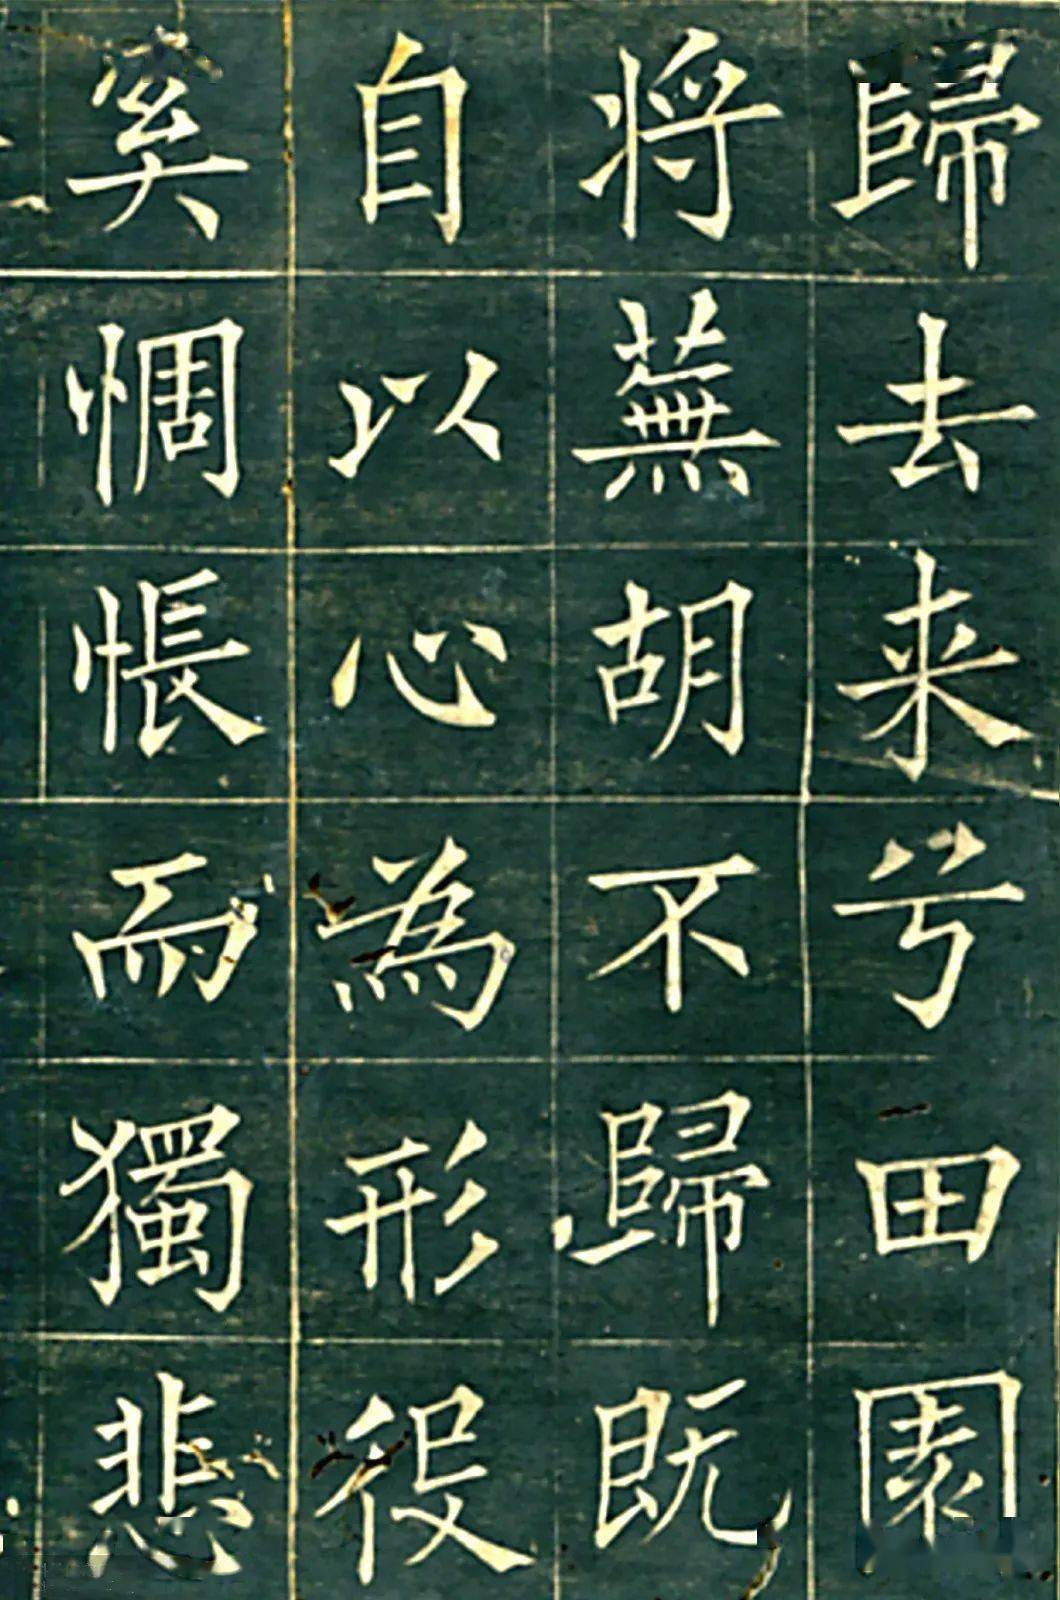 歸去来兮田園
将蕪胡不歸既
自以心為形役
奚惆悵而獨悲